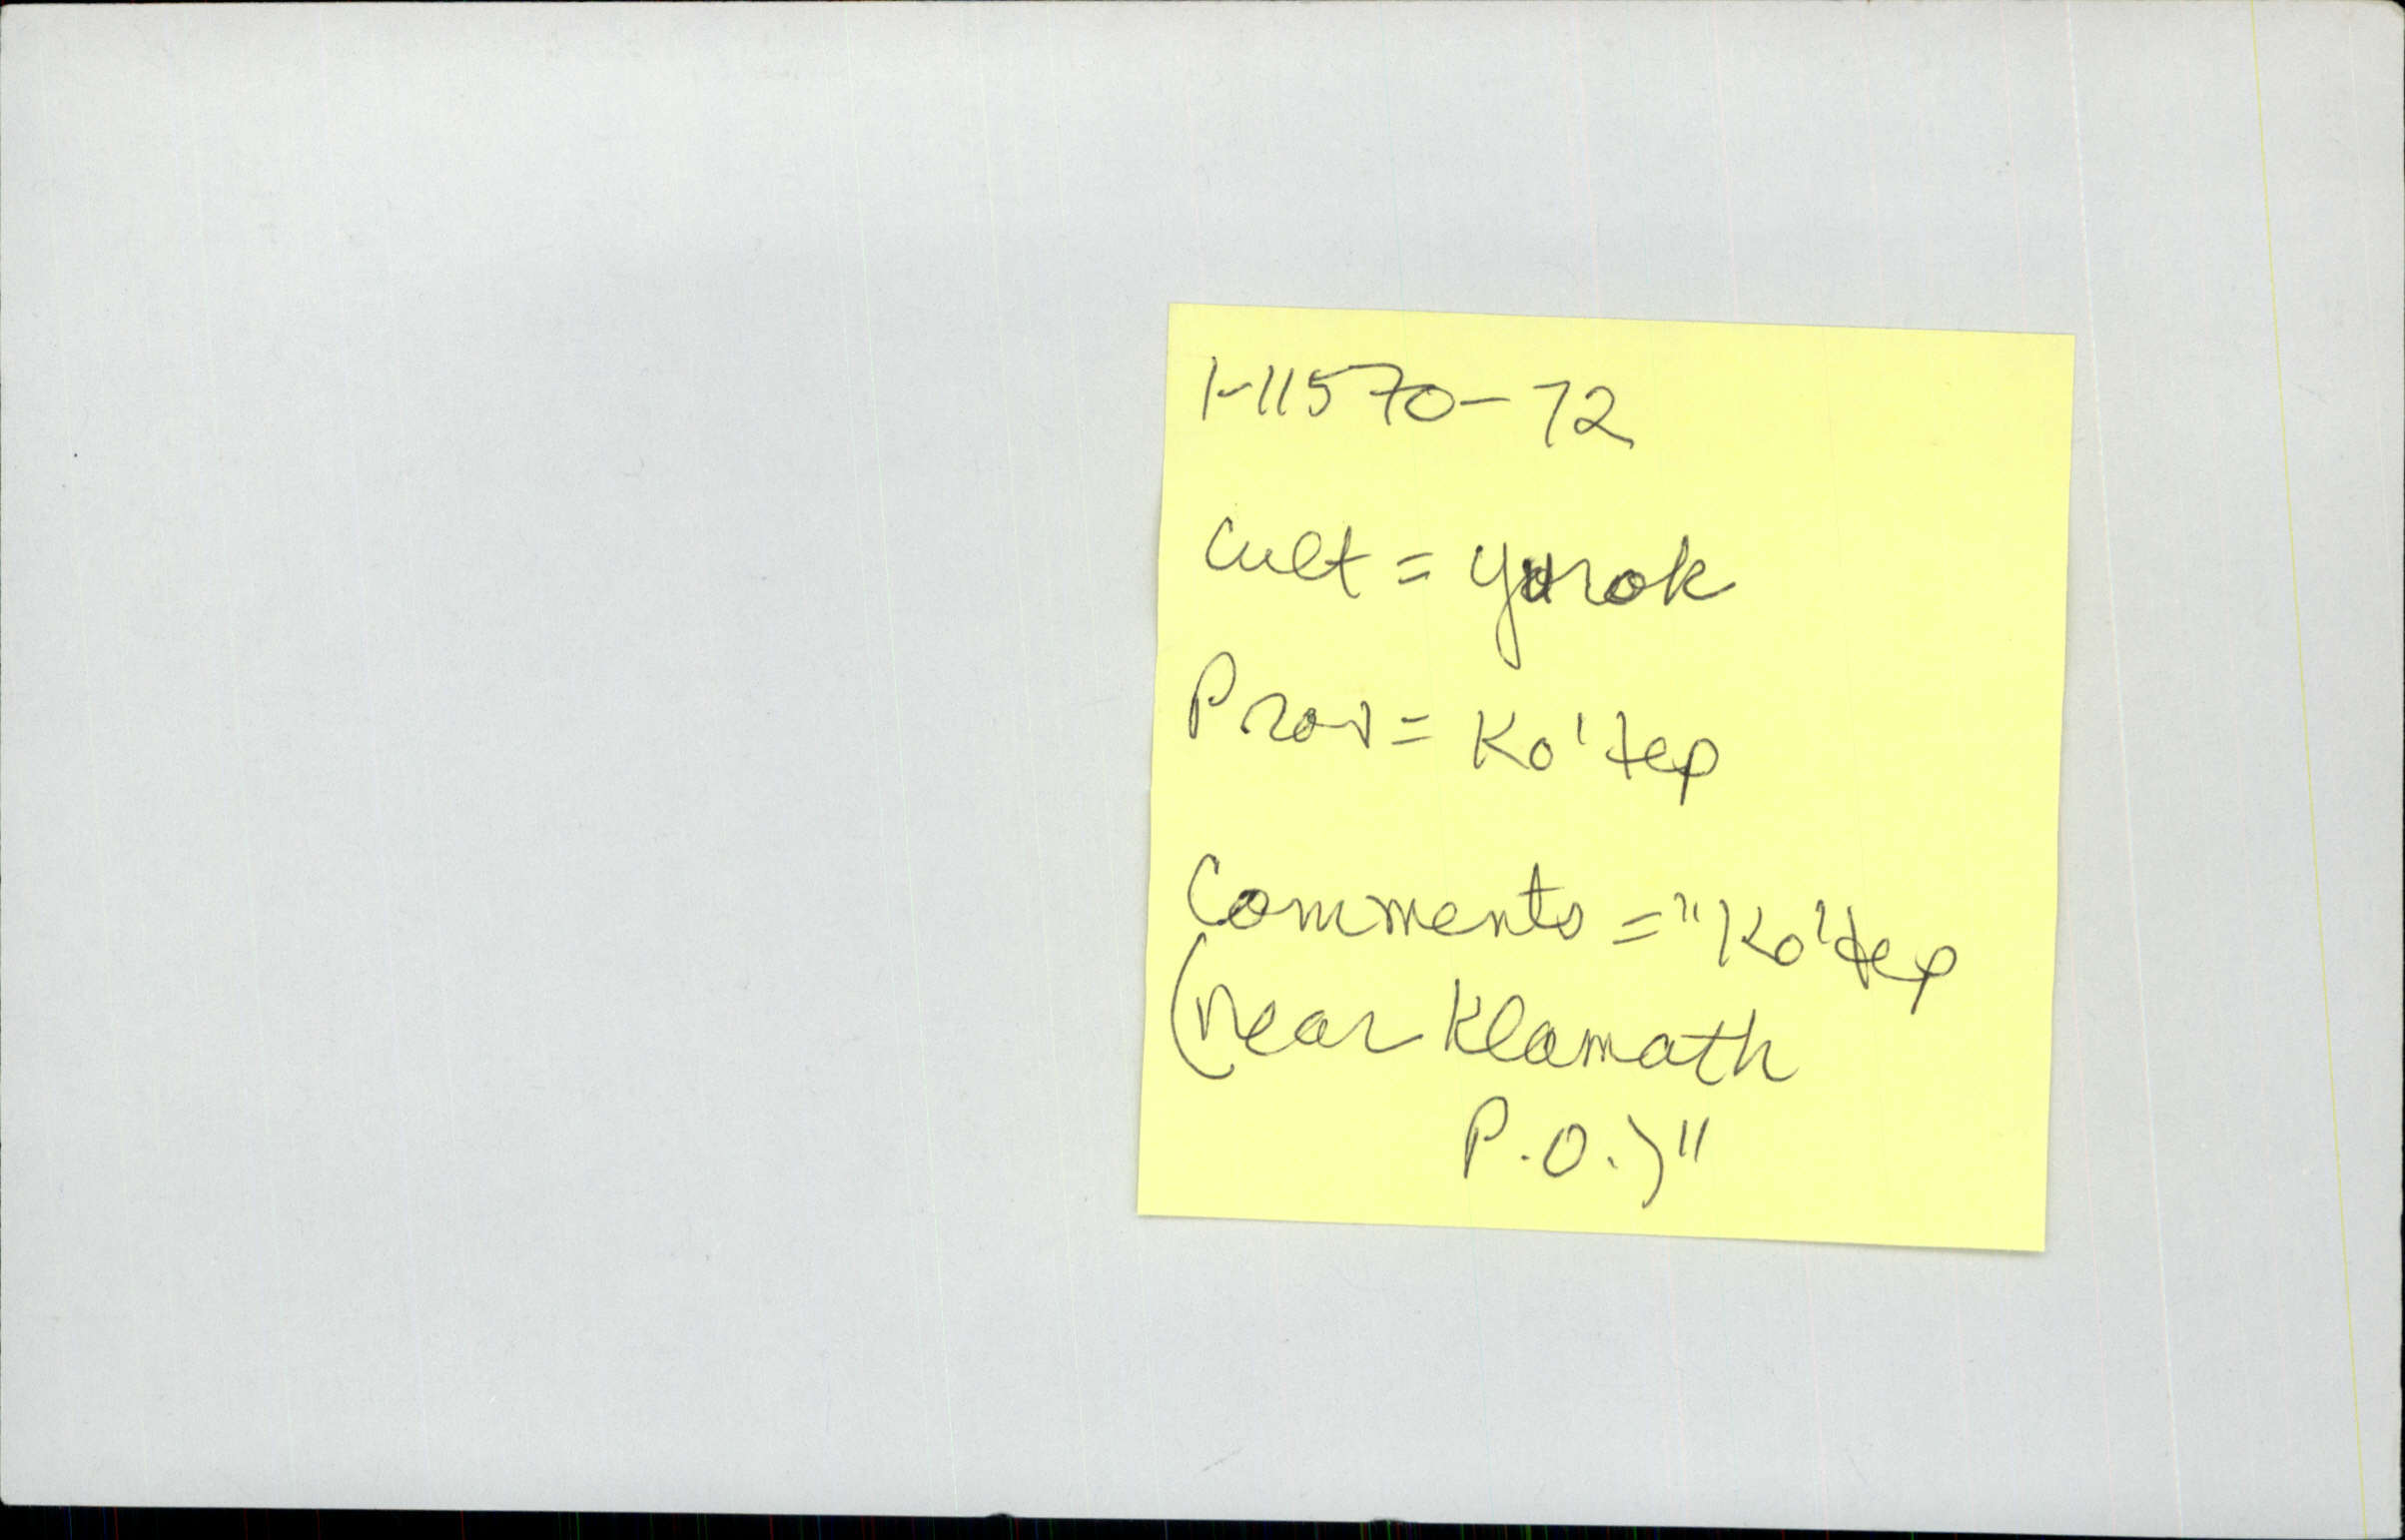 1-11570-72
Cult = Yurok
Prov = Ko'tep
Comments = "Ko'tep
(near Klamath
P.O.)"